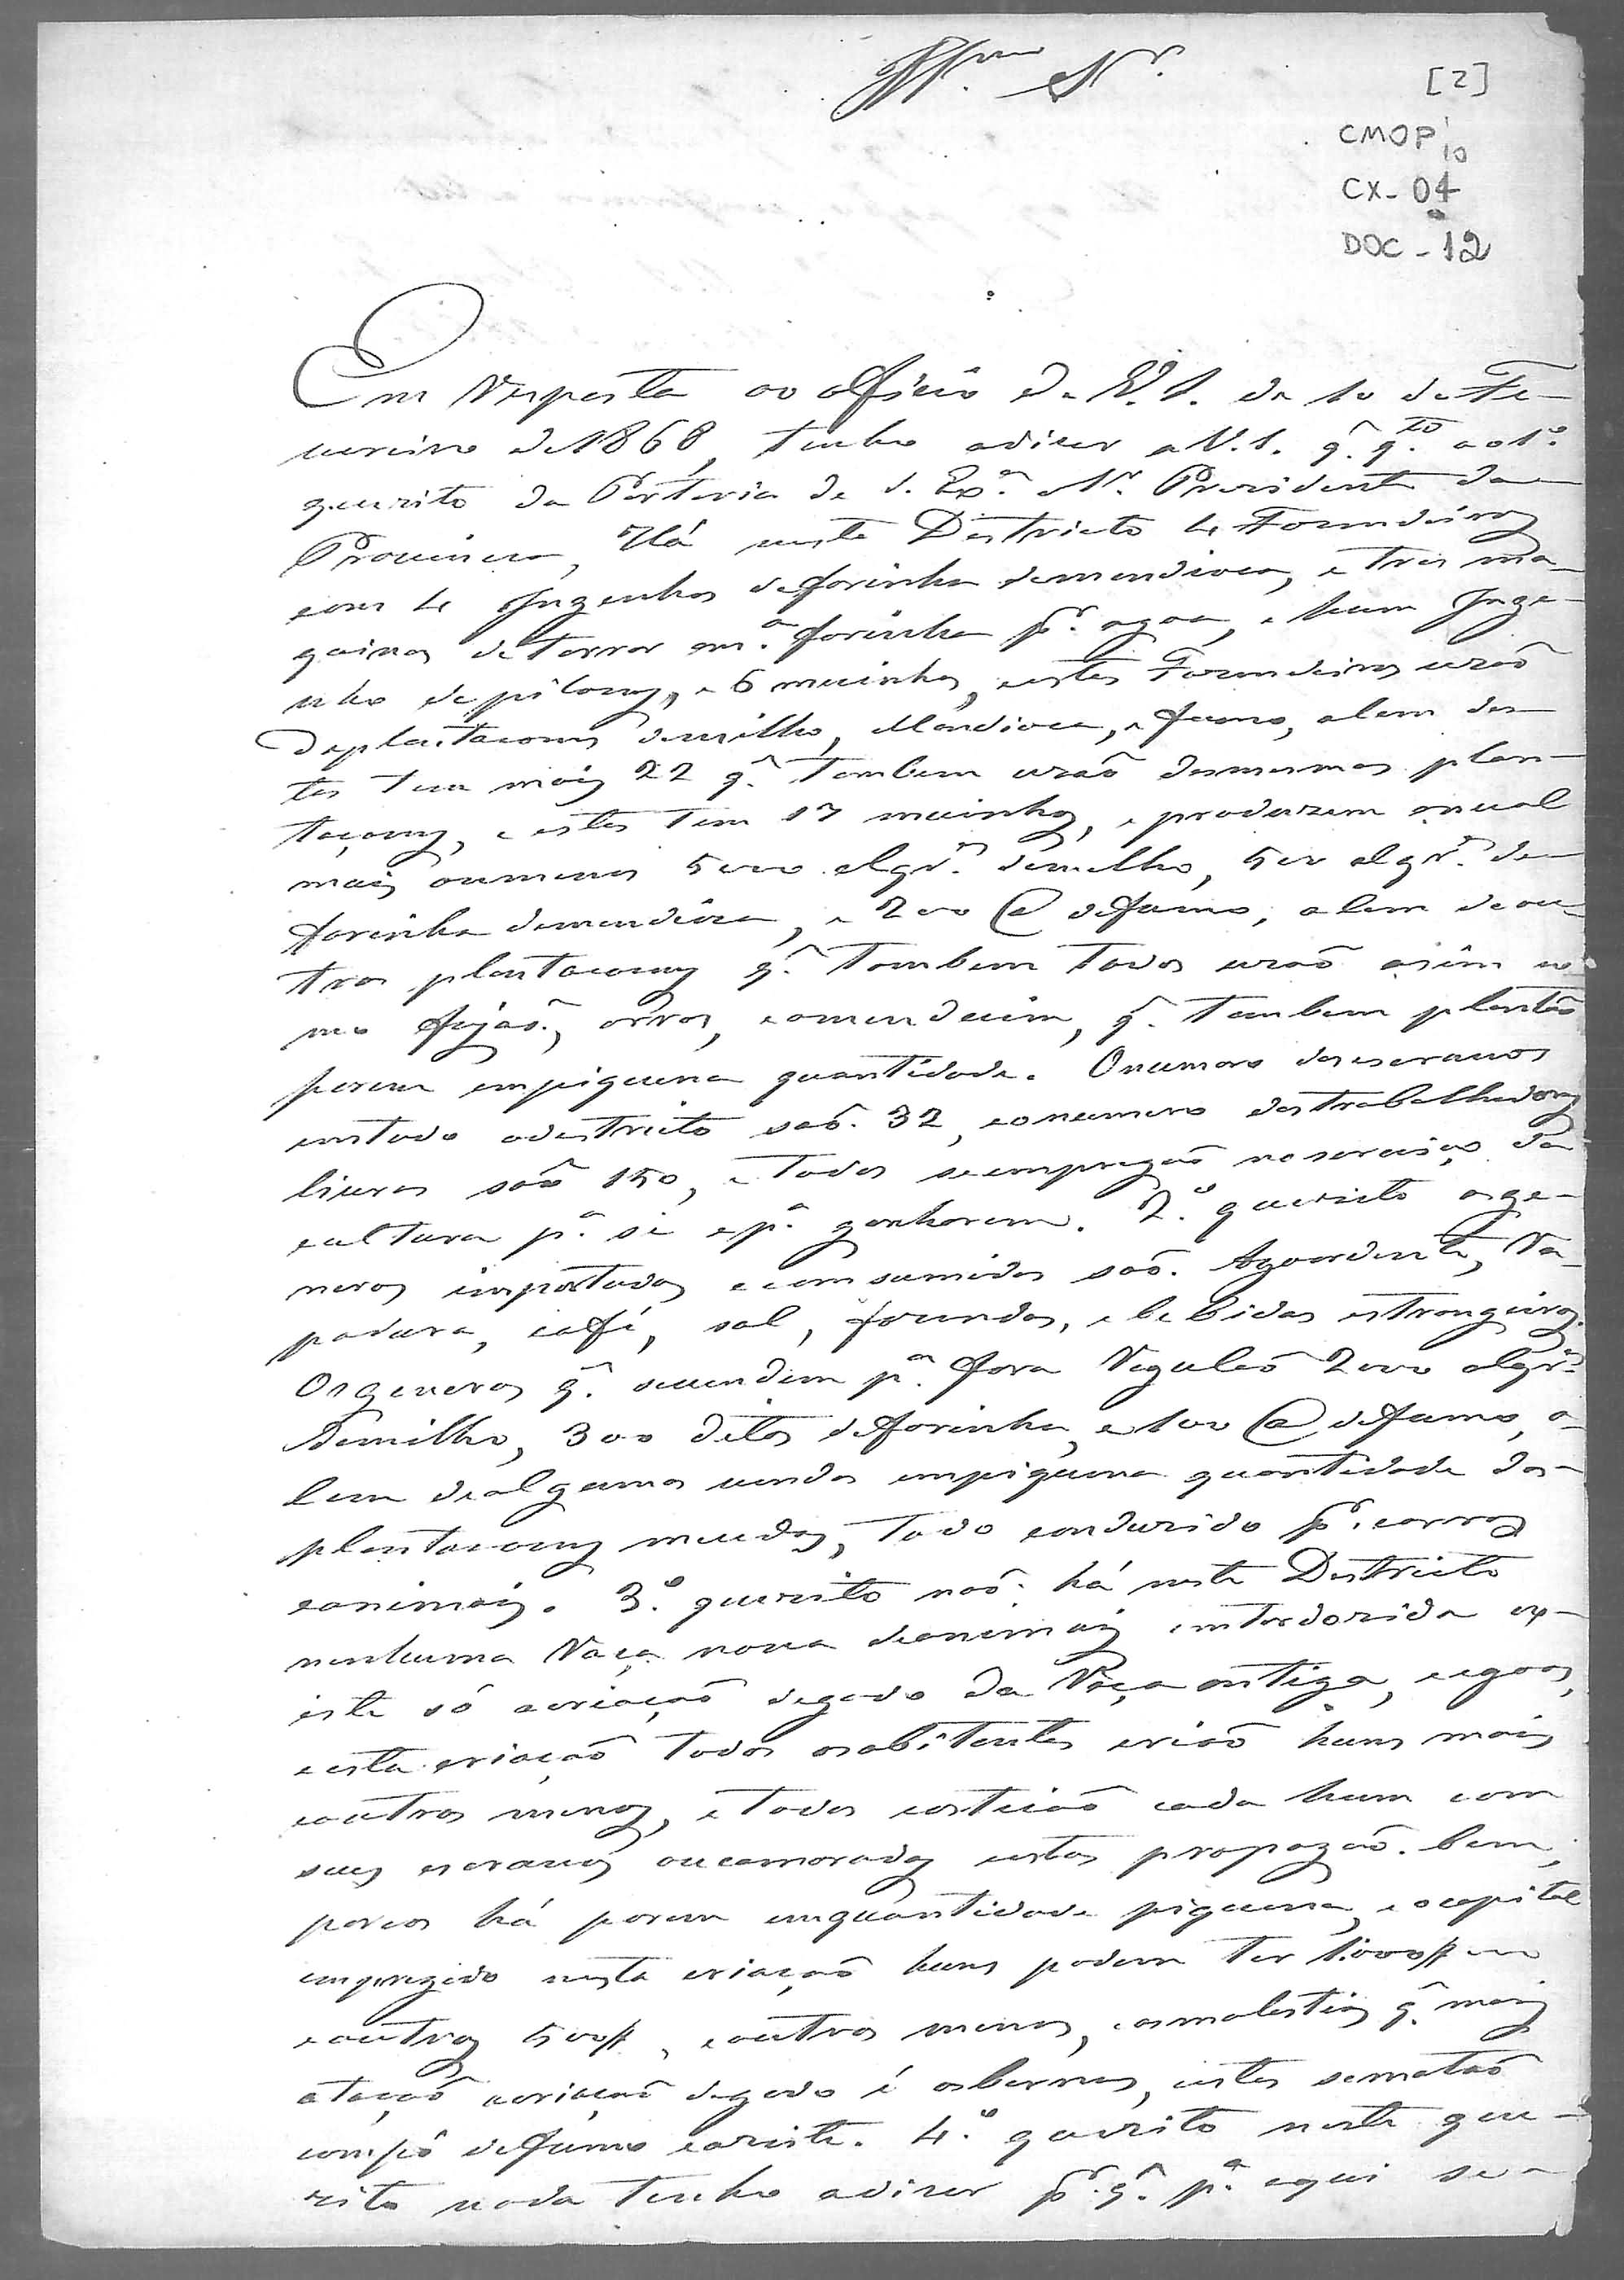 Illmo. Snr.
[2]
CMOP
10
CX - 04
DOC - 12
Em Resposta ao Officio de V. S. de 10 de Fe-
vereiro de 1868, tenho adizer a V. S. q. q.to ao 1.º
quezito da Porteria de S. Exª. o Sr. Prezidente da
Provincia, Há neste Destricto 4 Fazendeiros
com 4 Ingenhos defarinha demendioca, e tres ma-
quinas detorrar m.ª farinha pr. agoa, e hum Inge-
nho depiloens, e 6 muinhos, estes Fazendeiros uzaõ
deplantacoens demilho, Mandioca, e fumo, alem des-
tes tem mais 22 q. tambem uzaõ dasmesmas plan-
taçoens, e estes tem 17 muinhos, e produzem anual
mais oumenos 5000 alqr.s demilho, 500 alqr.s de
farinha demendioca, e 200 @ defumo, alem deou-
tras plantacoens q. tambem todos uzaõ asim co
mo fejaõ, arros, eamenduim, q. tambem plantaõ
porem empiquena quantidade. Onumero dosescravos
emtodo odestricto saõ 32, eonumero dostrabalhadores
livres saõ 150, e todos seempregaõ noserviço da
cultura p.ª si e p.ª ganharem. 2.º quezito osge-
neros importados econsumidos saõ. Agoardente, Ra-
padura, café, sal, fazendas, e bebidas estrongeiras.
Osgeneros q. sevendem p.ª fora Regulaõ 2000 alqr.s
demilho, 300 ditos defarinha, e 100 @ defumo, a-
lem dealgumas vendas empiquena quantidade das
plantacoens meudas, todo conduzido pr. carros
eanimais. 3.º quezito naõ há neste Destricto
nenhuma Raça nova deanimais intordozida ex-
iste só acriaçaõ degado da Raça antiga, eegoas,
eesta criaçaõ todos osabitentes criaõ huns mais
eoutros menos, e todos custeiaõ cada hum com
seus escravos oucamaradas estas propagaõ bem,
porcos há porem emquantidade piquena, e ocapital
empregado nesta criaçaõ huns podem ter 1:000$
eoutros 500$, eoutros menos, asmolestias q. mais
atacaõ acriaçaõ degado é osbernes, estes sematãõ
compó defumo eazeite. 4.º quezito neste que-
zito nada tenho adizer pr. q. p.ª aqui